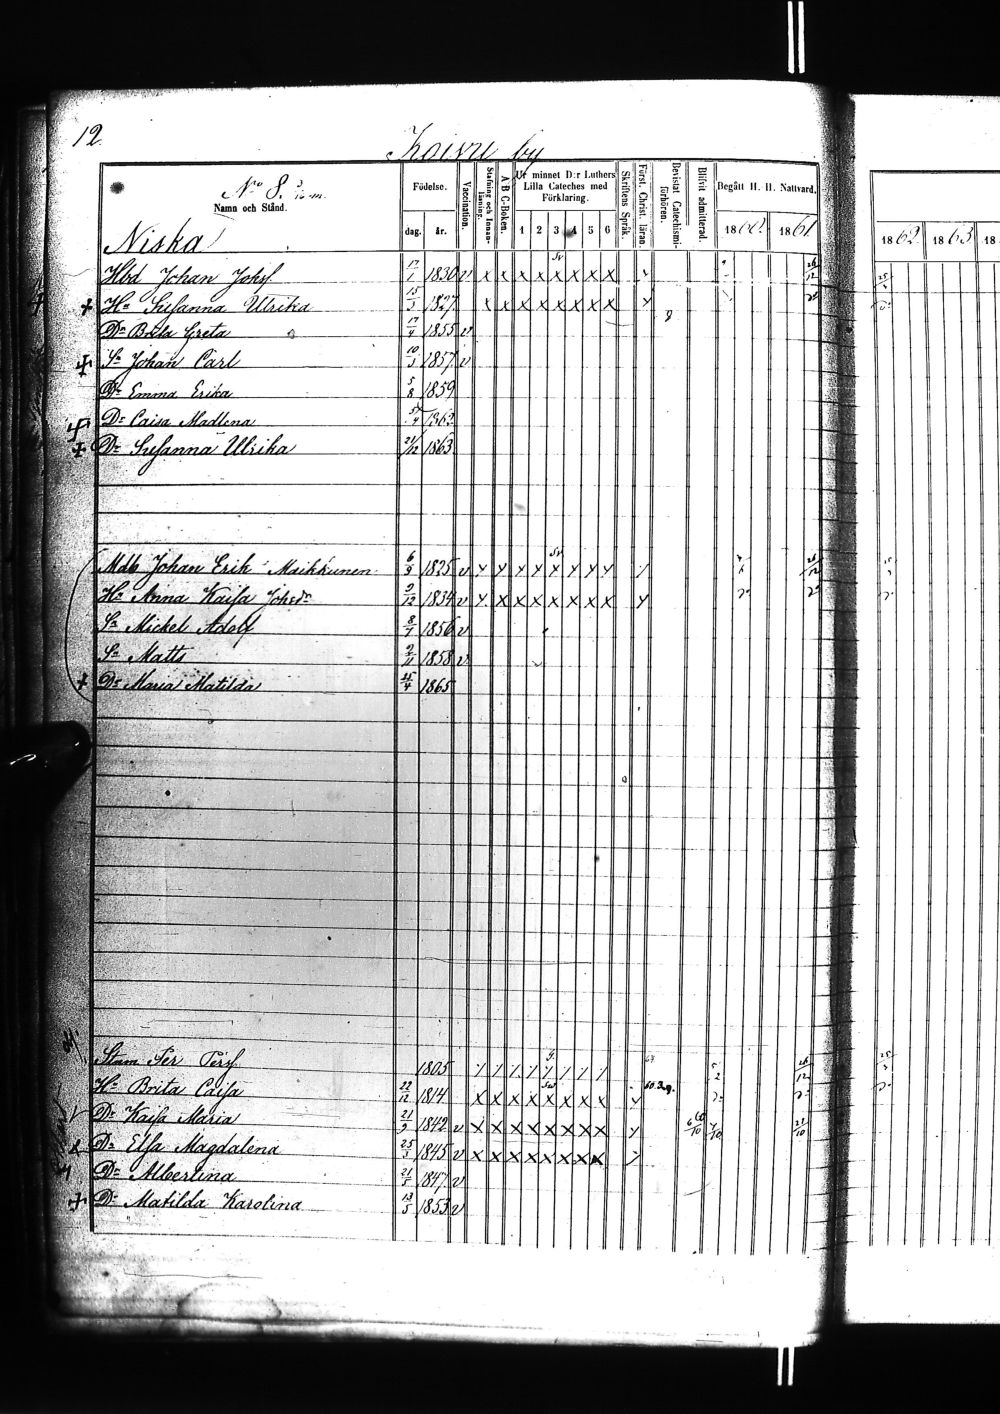 12.
Koivu by
No 8.
Namn och Stånd.
Födelse.
dag. år.
Vaccination.
Stafning och Innanläsning.
A B C-Boken.
Ur minnet D:r Luthers Lilla Cateches med Förklaring.
1 2 3 4 5 6
Skriftens Språk.
Först. Christ. läran.
Bevistat Catechismiförhören.
Blifvit admitterad.
Begått H. H. Nattvard.
1860. 1861
1862. 1863 18
Niska
Hbd Johan Johsf 17/1 1830 v x x x x x x x x
Hu Susanna Ulrika 15/3 1827 x x x x x x x x
Dr Brita Greta 17/4 1855 v
Sn Johan Carl 10/3 1857 v
Dr Emma Erika 5/8 1859
Dr Caisa Madlena 1862
Dr Susanna Ulrika 21/12 1863
Mdb Johan Erik Maikkunen 6/9 1825 v x x x x x x x x
Hu Anna Kaisa Johsdr 9/12 1834 v x x x x x x x x
Sn Mickel Adolf 8/7 1856 v
Sn Matts 9/11 1858 v
Dr Maria Matilda 25/4 1865
Per Persf 1805
Hu Brita Caisa 22/12 1814 x x x x x x x x
Dr Kaisa Maria 21/9 1842 v x x x x x x x x
Dr Elsa Magdalena 25/3 1845 v x x x x x x x x
Dr Albertina 21/1 1847 v
Dr Matilda Karolina 13/5 1853 v